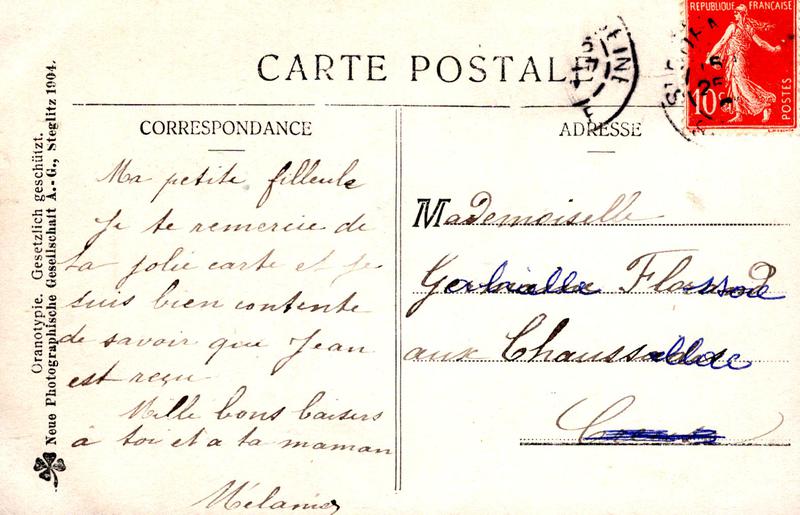 CARTE POSTALE
REPUBLIQUE FRANÇAISE
10c
POSTES
CORRESPONDANCE
Ma petite filleule
Je te remercie de
ta jolie carte et je
suis bien contente
de savoir que Jean
est reçu
Mille bons baisers
à toi et a ta maman
Mélanie
ADRESSE
Mademoiselle
aux
Oranotypie. Gesetzlich geschützt.
Neue Photographische Gesellschaft A.-G., Steglitz 1904.